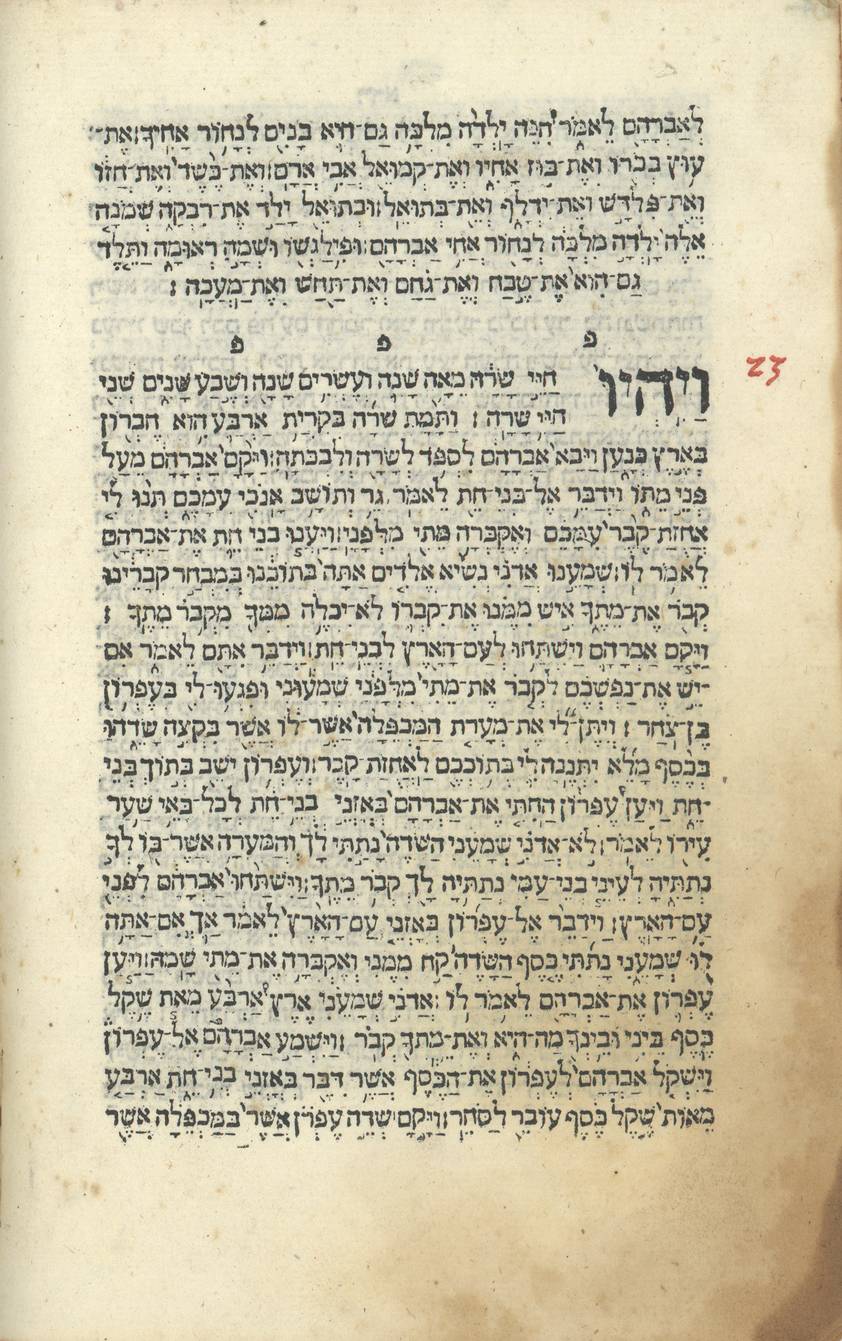 לאברהם לאמר הנה ילדה מלכה גם־היא בנים לנחור אחיך׃ את־
עוץ בכרו ואת־בוז אחיו ואת־קמואל אבי ארם׃ ואת־כשד ואת־חזו
ואת־פלדש ואת־ידלף ואת־בתואל׃ ובתואל ילד את־רבקה שמנה
אלה ילדה מלכה לנחור אחי אברהם׃ ופילגשו ושמה ראומה ותלד
גם־הוא את־טבח ואת־גחם ואת־תחש ואת־מעכה׃
פ פ פ
23
ויהיו חיי שרה מאה שנה ועשרים שנה ושבע שנים שני
חיי שרה׃ ותמת שרה בקרית ארבע הוא חברון
בארץ כנען ויבא אברהם לספד לשרה ולבכתה׃ ויקם אברהם מעל
פני מתו וידבר אל־בני־חת לאמר׃ גר ותושב אנכי עמכם תנו לי
אחזת־קבר עמכם ואקברה מתי מלפני׃ ויענו בני חת את־אברהם
לאמר לו׃ שמענו אדני נשיא אלדים אתה בתוכנו במבחר קברינו
קבר את־מתך איש ממנו את־קברו לא־יכלה ממך מקבר מתך׃
ויקם אברהם וישתחו לעם־הארץ לבני־חת׃ וידבר אתם לאמר אם
־יש את־נפשכם לקבר את־מתי מלפני שמעוני ופגעו־לי בעפרון
בן־צחר׃ ויתן־לי את־מערת המכפלה אשר־לו אשר בקצה שדהו
בכסף מלא יתננה לי בתוככם לאחזת־קבר׃ ועפרון ישב בתוך בני
־חת ויען עפרון החתי את־אברהם באזני בני־חת לכל־באי שער
עירו לאמר׃ לא־אדני שמעני השדה נתתי לך והמערה אשר־בו לך
נתתיה לעיני בני־עמי נתתיה לך קבר מתך׃ וישתחו אברהם לפני
עם־הארץ׃ וידבר אל־עפרון באזני עם־הארץ לאמר אך אם־אתה
לו שמעני נתתי כסף השדה קח ממני ואקברה את־מתי שמה׃ ויען
עפרון את־אברהם לאמר לו׃ אדני שמעני ארץ ארבע מאת שקל
כסף ביני ובינך מה־היא ואת־מתך קבר׃ וישמע אברהם אל־עפרון
וישקל אברהם לעפרון את־הכסף אשר דבר באזני בני־חת ארבע
מאות שקל כסף עובר לסחר׃ ויקם שדה עפרן אשר במכפלה אשר